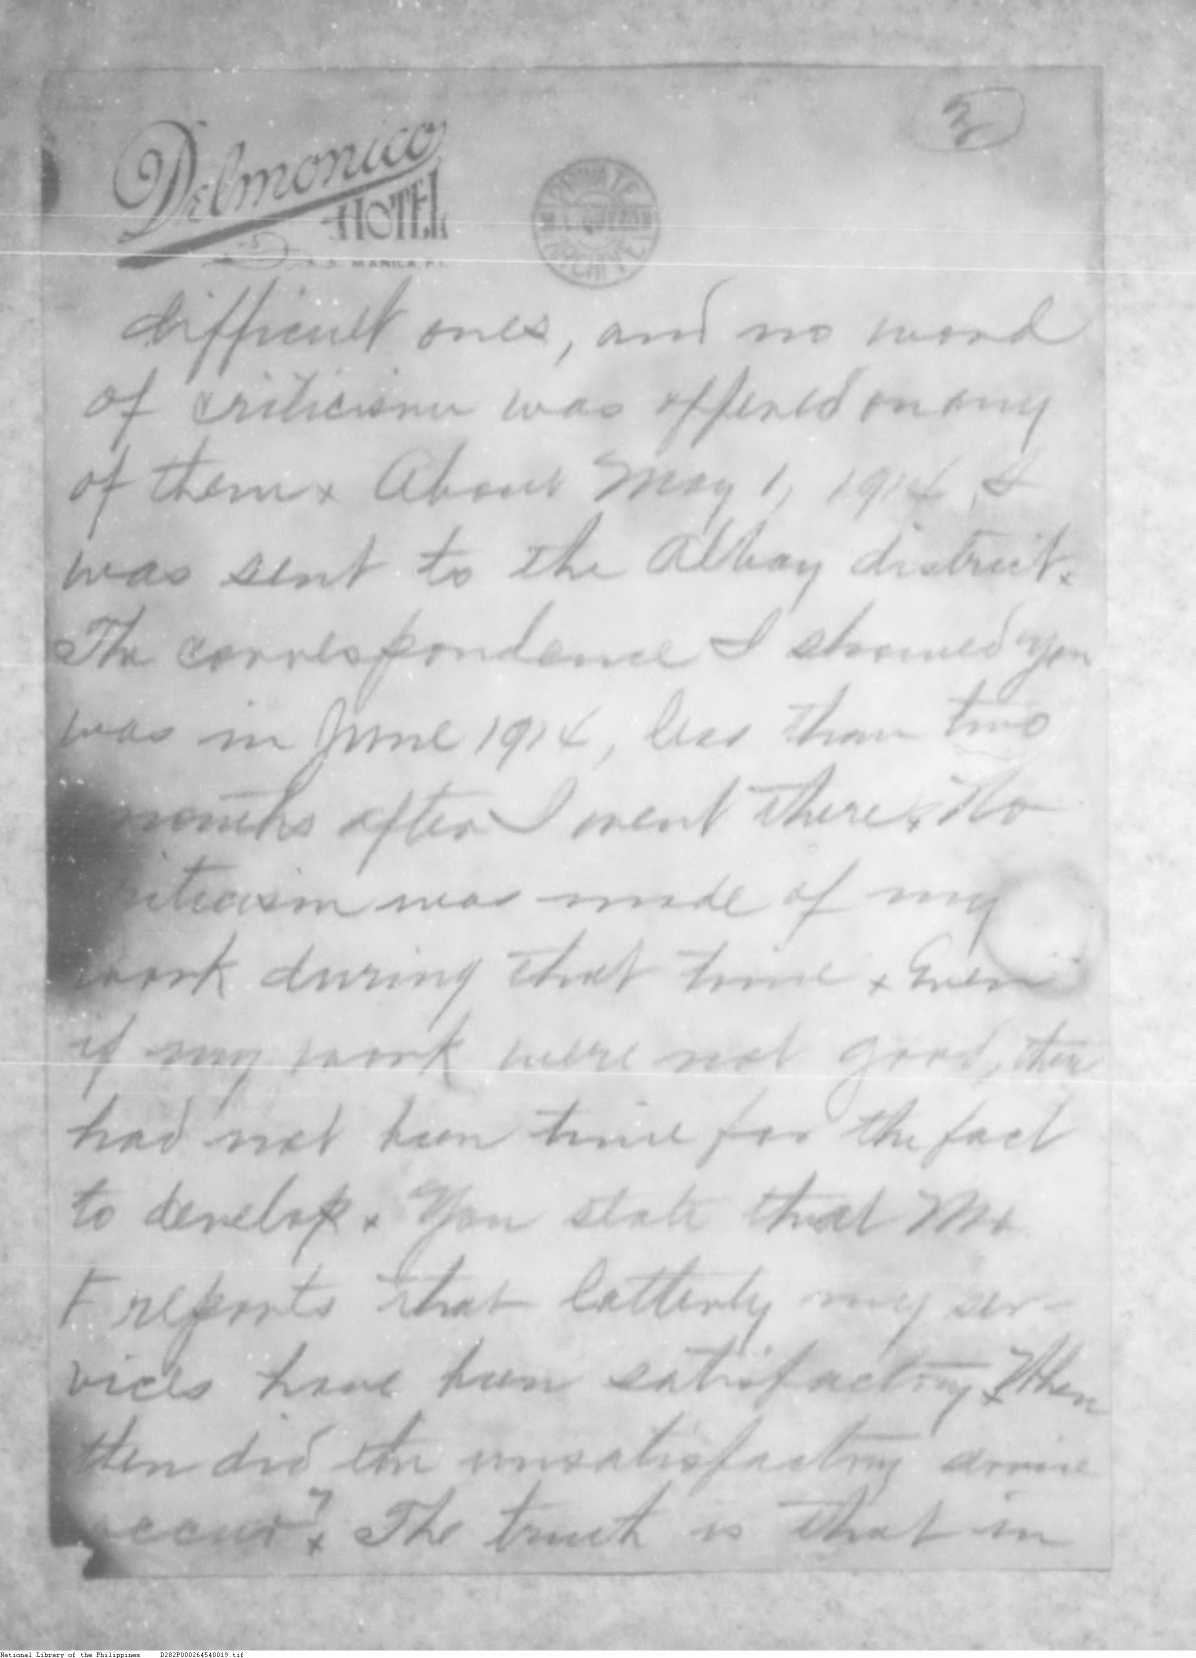 3
Delmonico
HOTEL
MANILA, P.I.
PRIVATE
M. L. QUEZON
ARCHIVE
difficult ones, and no word
of criticism was offered on any
of them x About May 1, 1914, I
was sent to the Albay district x
The correspondence I showed you
was in June 1914, less than two
months after I went there x No
criticism was made of my
work during that time x Even
if my work were not good, there
had not been time for the fact
to develop x You state that Mr
F reports that latterly my ser-
vices have been satisfactory x When
then did the unsatisfactory service
occur? x The truth is that in
National Library of the Philippines D282P000264540019.tif